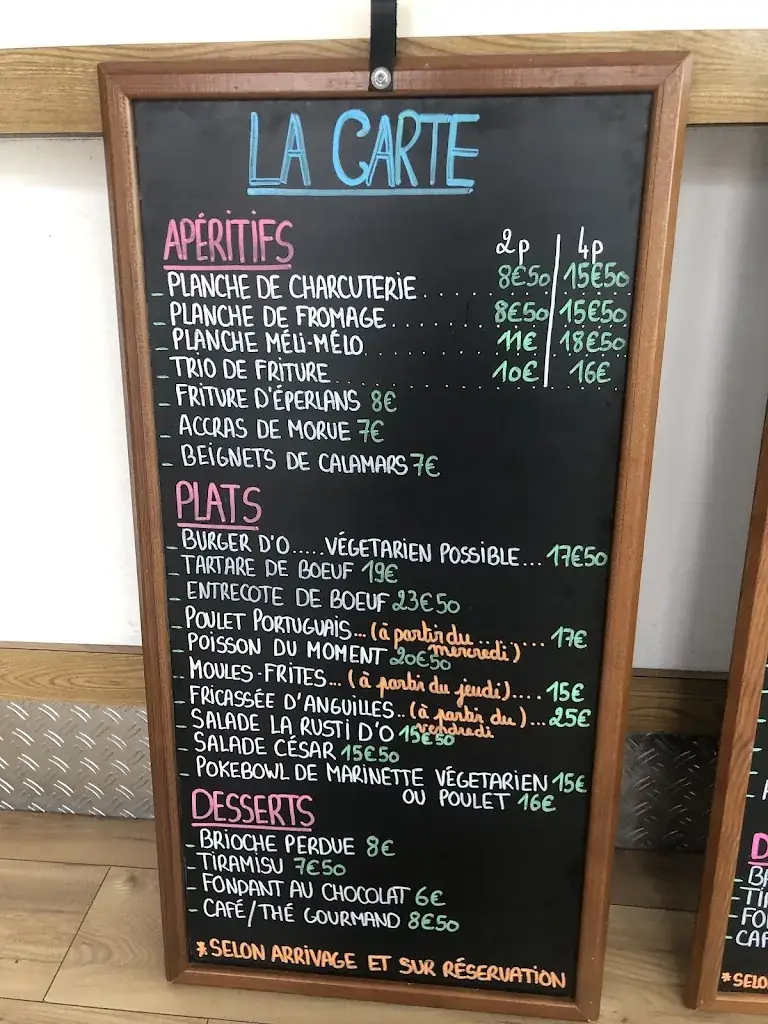 LA CARTE
APÉRITIFS 2p 4p
_ PLANCHE DE CHARCUTERIE........ 8€50 15€50
_ PLANCHE DE FROMAGE........ 8€50 15€50
_ PLANCHE MÉLI-MÉLO........ 11€ 18€50
_ TRIO DE FRITURE........ 10€ 16€
_ FRITURE D'ÉPERLANS 8€
_ ACCRAS DE MORUE 7€
_ BEIGNETS DE CALAMARS 7€
PLATS
_ BURGER D'O.....VÉGETARIEN POSSIBLE... 17€50
_ TARTARE DE BOEUF 19€
_ ENTRECOTE DE BOEUF 23€50
_ POULET PORTUGUAIS...(à partir du........ 17€
mercredi)
_ POISSON DU MOMENT 20€50
_ MOULES-FRITES...(à partir du jeudi).... 15€
_ FRICASSÉE D'ANGUILLES..(à partir du)...25€
vendredi
_ SALADE LA RUSTI D'O 15€50
_ SALADE CÉSAR 15€50
_ POKEBOWL DE MARINETTE VÉGETARIEN 15€
OU POULET 16€
DESSERTS
- BRIOCHE PERDUE 8€
- TIRAMISU 7€50
- FONDANT AU CHOCOLAT 6€
- CAFÉ/THÉ GOURMAND 8€50
*SELON ARRIVAGE ET SUR RÉSERVATION
D
- BR
- TI
- FO
- CAF
*SELO